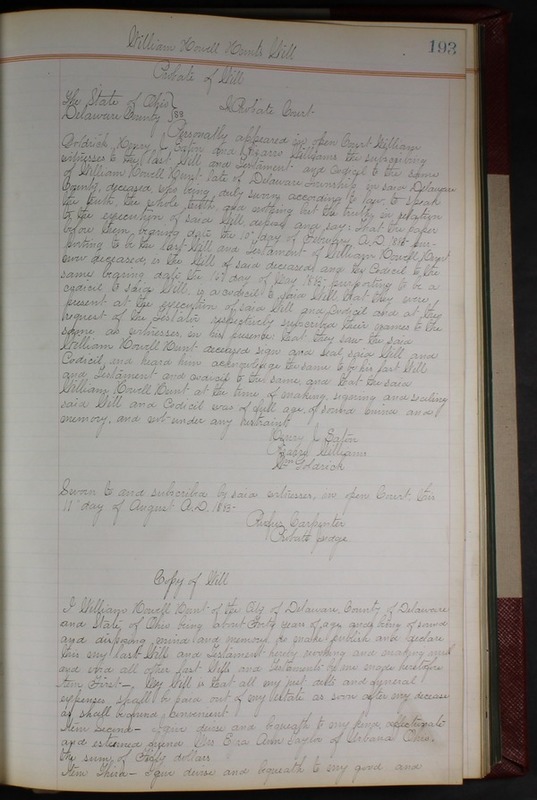 William Howell Hunts Will
193
Probate of Will
The State of Ohio }
Delaware County } SS
Probate Court
Personally appeared in open Court William
Goldrick, Henry J. Eaton and Pizarro Williams the subscribing
witnesses to the last Will and Testament and Codicil to the same
of William Howell Hunt late of Delaware Township, in said Delaware
County, deceased who being duly sworn according to law, to speak
the truth, the whole truth, and nothing but the truth, in relation
to the execution of said Will, depose and say: That the paper
before them, bearing date the 10" day of February A.D. pur-
porting to be the last Will and Testament of William Howell Hunt
now deceased, is the Will of said deceased, and the Codicil to the
same bearing date the day of May purporting to be a
codicil to said Will, is a codicil to said Will, that they were
present at the execution of said Will and Codicil and at the
request of the Testator respectively subscribed their names to the
same as witnesses, in his presence; that they saw the said
William Howell Hunt deceased sign and seal said Will and
Codicil, and heard him acknowledge the same to be his last Will
and Testament and codicil to the same, and that the said
William Howell Hunt at the time of making, signing and sealing
said Will and Codicil was of full age, of sound mind and
memory, and not under any restraint
Henry J. Eaton
Pizarro Williams
Wm Goldrick
Sworn to and subscribed by said witnesses, in open Court, this
11" day of August A.D. 1893-
Rufus Carpenter
Probate Judge
Copy of Will
I William Howell Hunt of the City of Delaware County of Delaware
and State of Ohio being about Forty years of age and being of sound
and disposing mind and memory do make publish and declare
this my last Will and Testament hereby revoking and making null
and void all other last Wills and Testaments by me made heretofore
Item First— My Will is that all my just debts and funeral
expenses shall be paid out of my estate as soon after my decease
as shall be found convenient
Item Second— I give devise and bequeath to my kind affectionate
and esteemed friend Mrs Ann Taylor of Urbana Ohio
the sum of Fifty dollars
Item Third— I give devise and bequeath to my good and